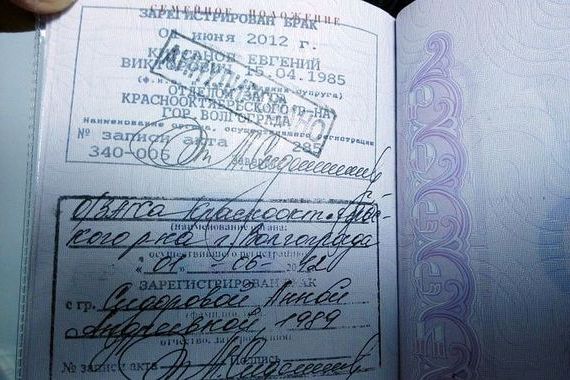 СЕМЕЙНОЕ ПОЛОЖЕНИЕ
ЗАРЕГИСТРИРОВАН БРАК
01 июня 2012 г.
ЕВГЕНИЙ
ВИКТОРОВИЧ 15.04.1985
супруга)
КРАСНООКТЯБРЬСКОГО Р-НА
ГОР. ВОЛГОГРАДА
Наименование органа, осуществившего регистрации
№ записи акта 285
340-006
ОЗАГСа Краснооктябрьс-
кого р-на г. Волгограда
(наименование органа,
осуществившего регистрацию)
"01" 06 2012
ЗАРЕГИСТРИРОВАН БРАК
с гр. Сидоровой Анной
Андреевной, 1989
отчество, дата рождения)
№ записи акта Подпись